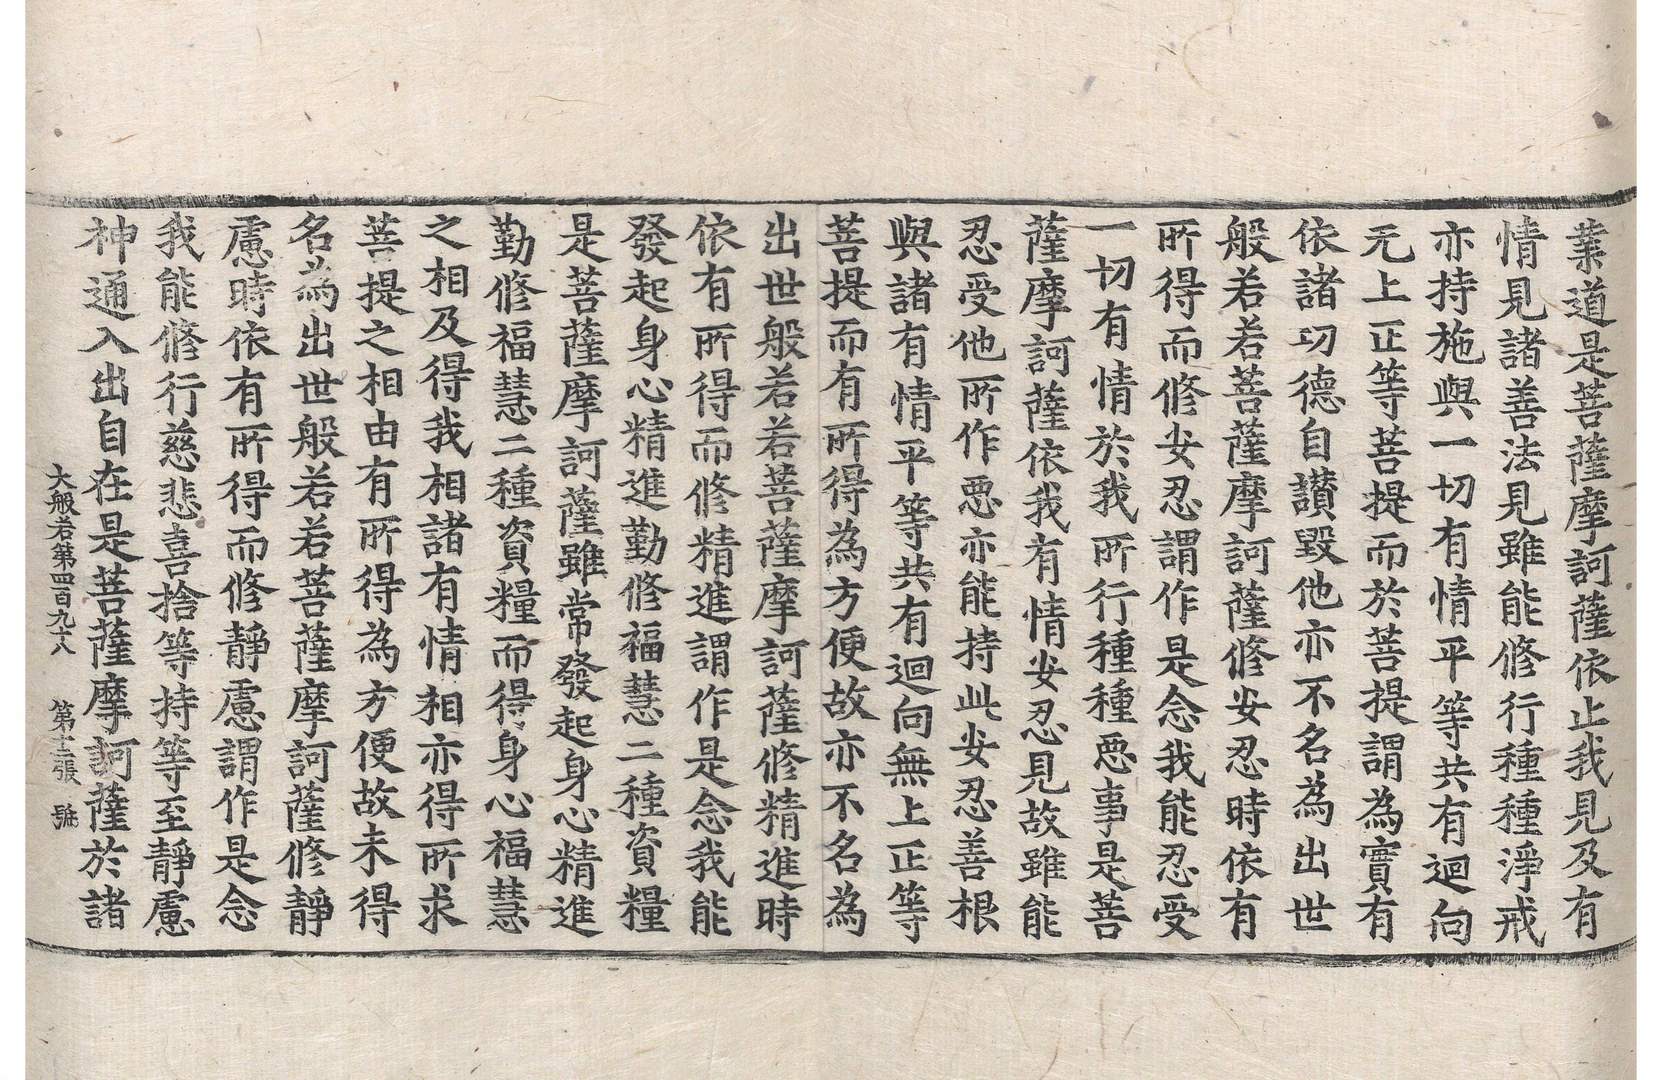 業道是菩薩摩訶薩依止我見及有
情見諸善法見雖能修行種種淨戒
亦持施與一切有情平等共有迴向
无上正等菩提而於菩提謂為實有
依諸功德自讃毀他亦不名為出世
般若若菩薩摩訶薩修安忍時依有
所得而修安忍謂作是念我能忍受
一切有情於我所行種種惡事是菩
薩摩訶薩依我有情安忍見故雖能
忍受他所作惡亦能持此安忍善根
與諸有情平等共有迴向無上正等
菩提而有所得為方便故亦不名為
出世般若若菩薩摩訶薩修精進時
依有所得而修精進謂作是念我能
發起身心精進勤修福慧二種資糧
是菩薩摩訶薩雖常發起身心精進
勤修福慧二種資糧而得身心福慧
之相及得我相諸有情相亦得所求
菩提之相由有所得為方便故未得
名為出世般若若菩薩摩訶薩修靜
慮時依有所得而修靜慮謂作是念
我能修行慈悲喜捨等持等至靜慮
神通入出自在是菩薩摩訶薩於諸
大般若第四百九十六 第十二張 號